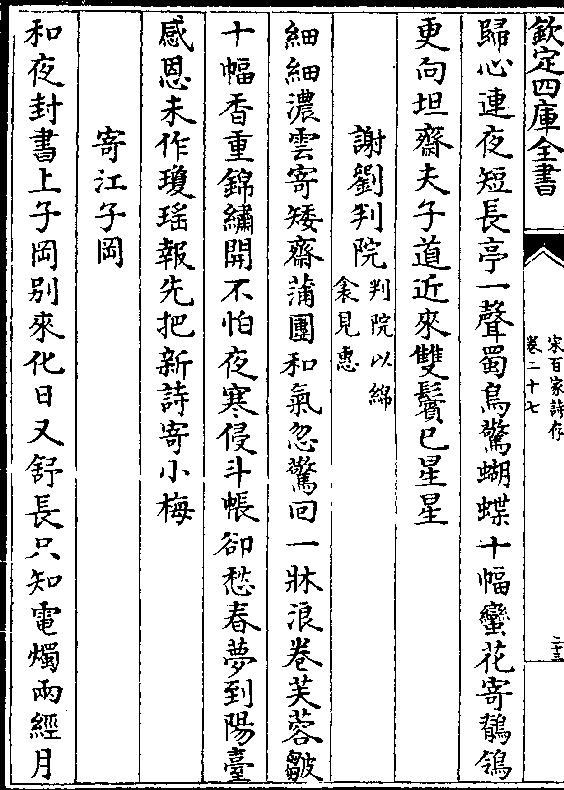 欽定四庫全書
宋百家詩存
卷二十七
二十三
歸心連夜短長亭一聲蜀鳥驚蝴蝶十幅蠻花寄鶺鴒
更向坦齋夫子道近來雙鬢已星星
謝劉判院判院以綿衾見惠
細細濃雲寄矮齋蒲團和氣忽驚回一牀浪卷芙蓉皺
十幅香重錦繡開不怕夜寒侵斗帳卻愁春夢到陽臺
感恩未作瓊瑤報先把新詩寄小梅
寄江子岡
和夜封書上子岡別來化日又舒長只知電燭兩經月